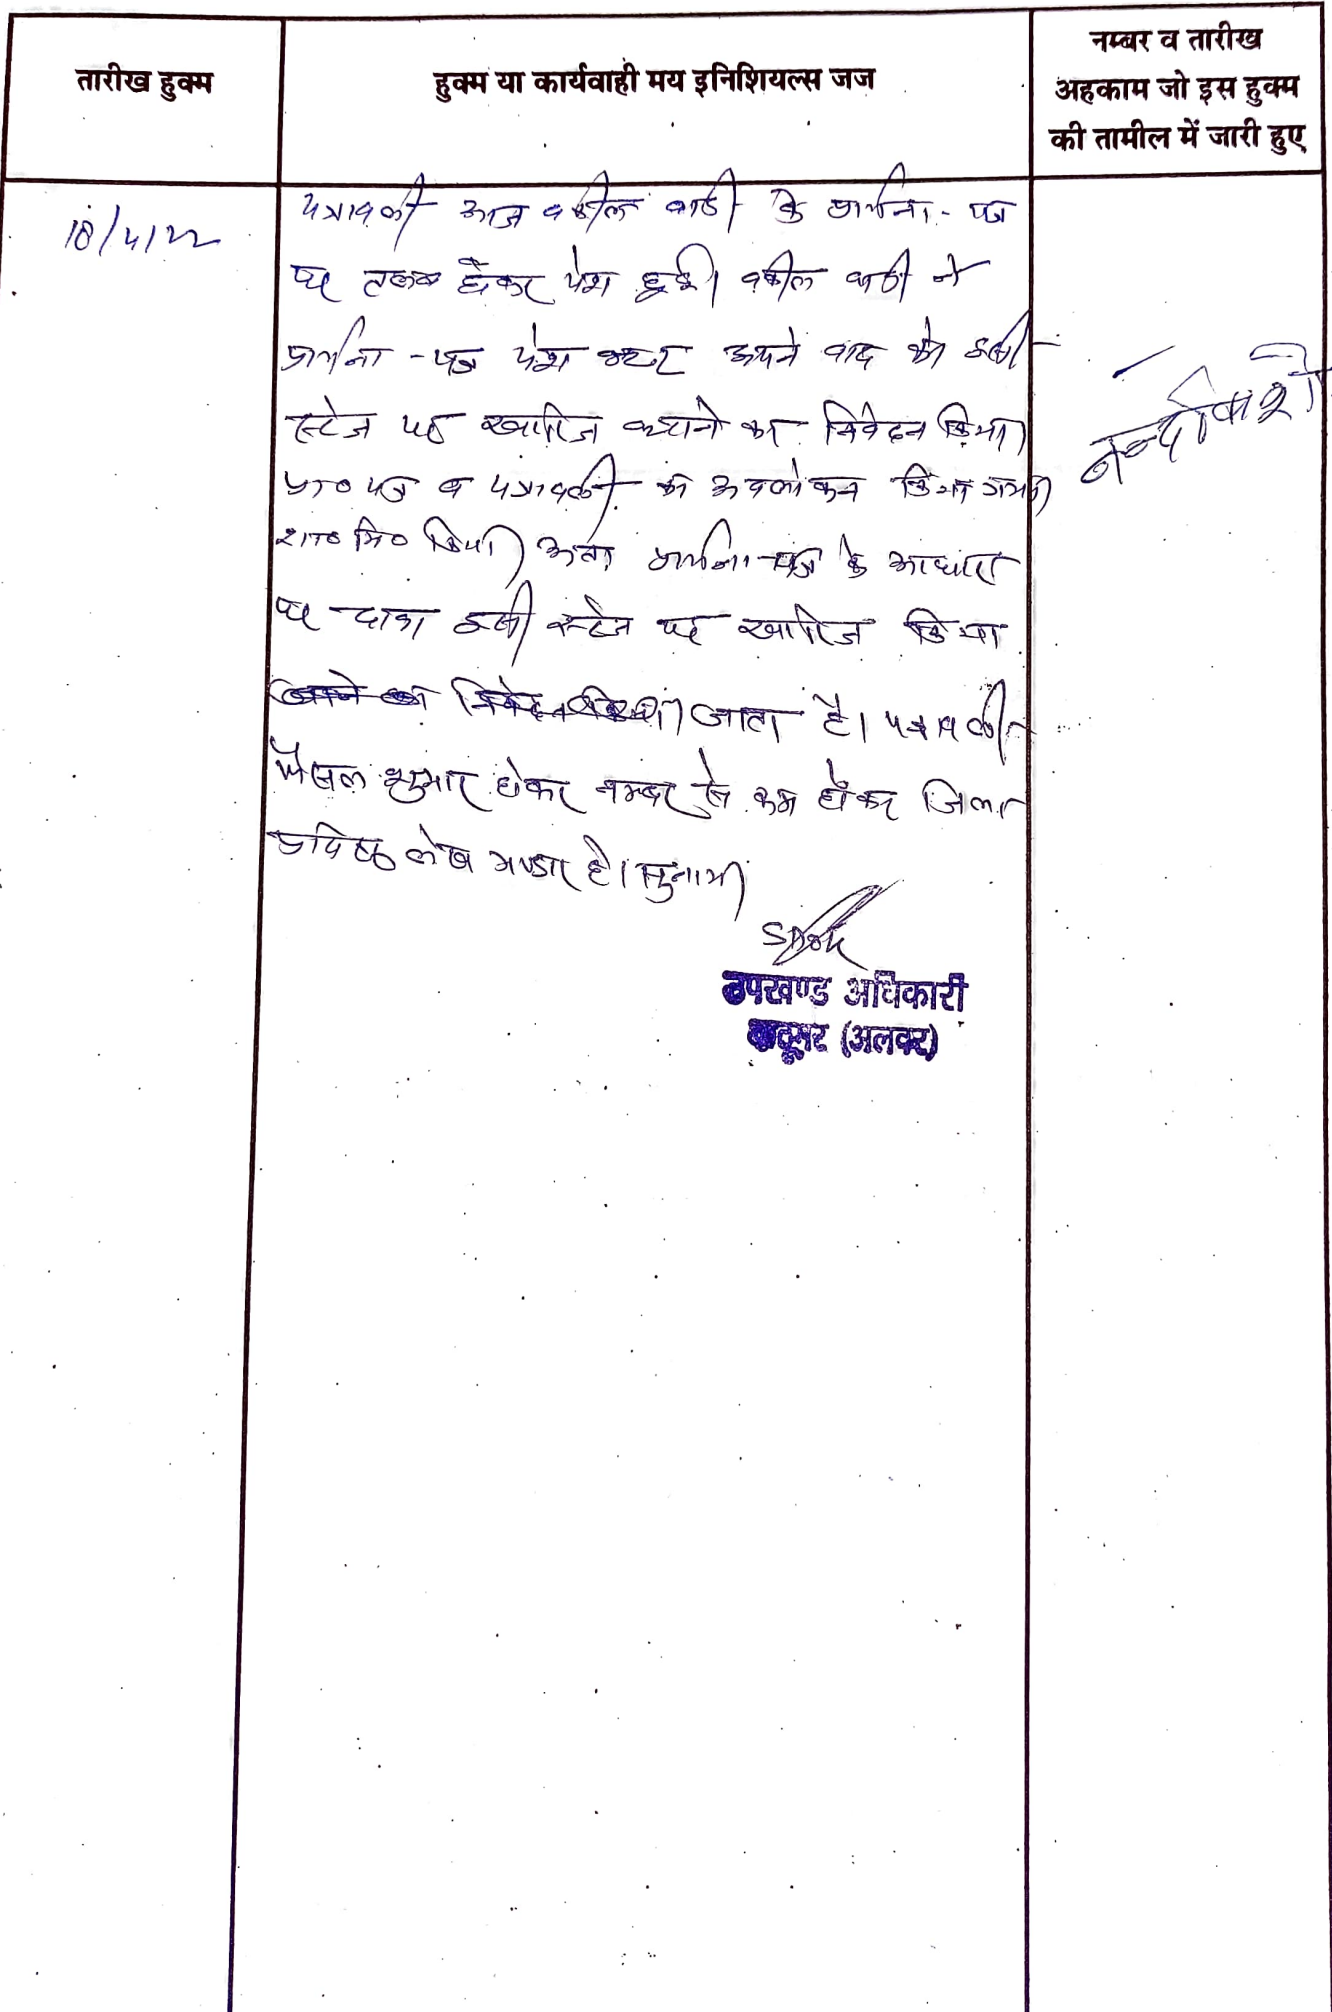 तारीख हुक्म
हुक्म या कार्यवाही मय इनिशियल्स जज
नम्बर व तारीख
अहकाम जो इस हुक्म
की तामील में जारी हुए
18/4/22
पत्रावली आज वकील वादी के प्रार्थना-पत्र
पर तलब होकर पेश हुई। वकील वादी ने
प्रार्थना-पत्र पेश कर अपने वाद को इसी
स्टेज पर खारिज कराने का निवेदन किया।
प्रा० पत्र व पत्रावली का अवलोकन किया गया।
शा० मि० किया। अतः प्रार्थना-पत्र के आधार
पर दावा इसी स्टेज पर खारिज किया
जाता है। पत्रावली
फैसल शुमार होकर नम्बर से कम होकर जिला
लेख भण्डार हो। सुनाया
उपखण्ड अधिकारी
कठूमर (अलवर)